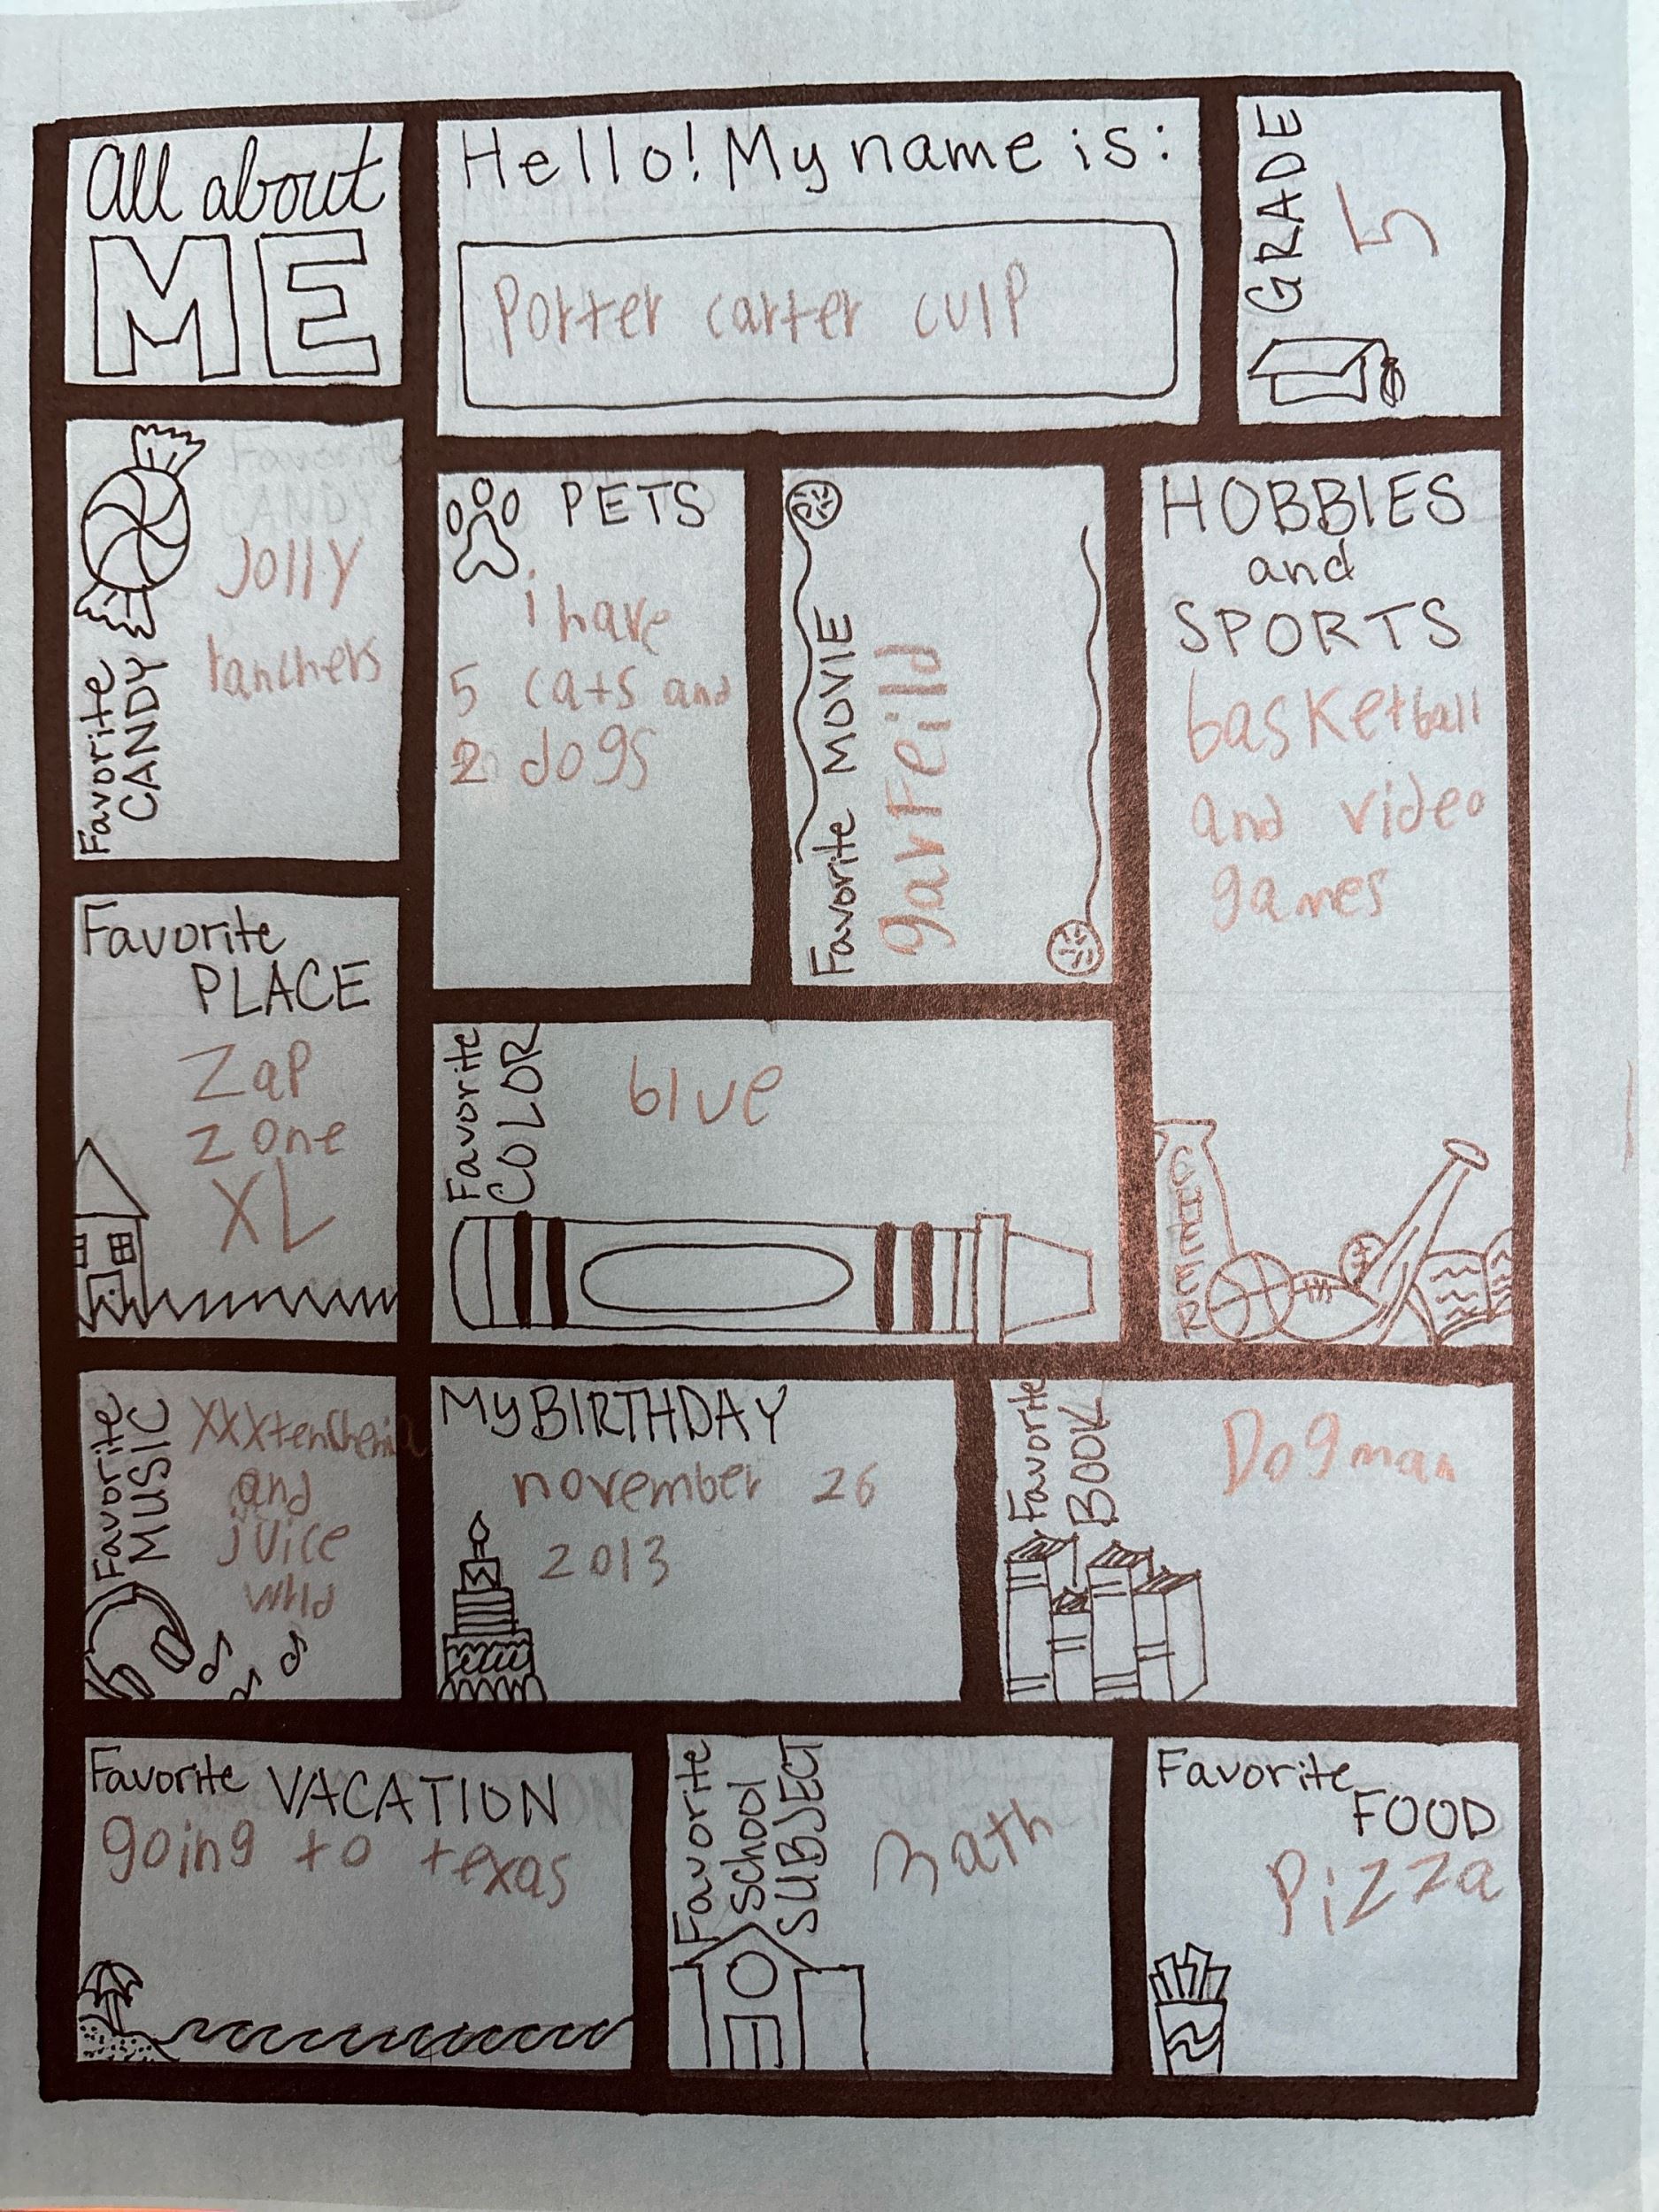 All about
ME
Hello! My name is:
Porter carter culp
GRADE
5
Favorite
CANDY
Jolly
ranchers
PETS
i have
5 cats and
2 dogs
Favorite MOVIE
garfeild
HOBBIES
and
SPORTS
basketball
and video
games
CHEER
Favorite
PLACE
Zap
zone
XL
Favorite
COLOR
blue
Favorite
MUSIC
and
juice
wrld
My BIRTHDAY
november 26
2013
Favorite
BOOK
Dogman
Favorite VACATION
going to texas
Favorite
School
SUBJECT
math
Favorite
FOOD
Pizza